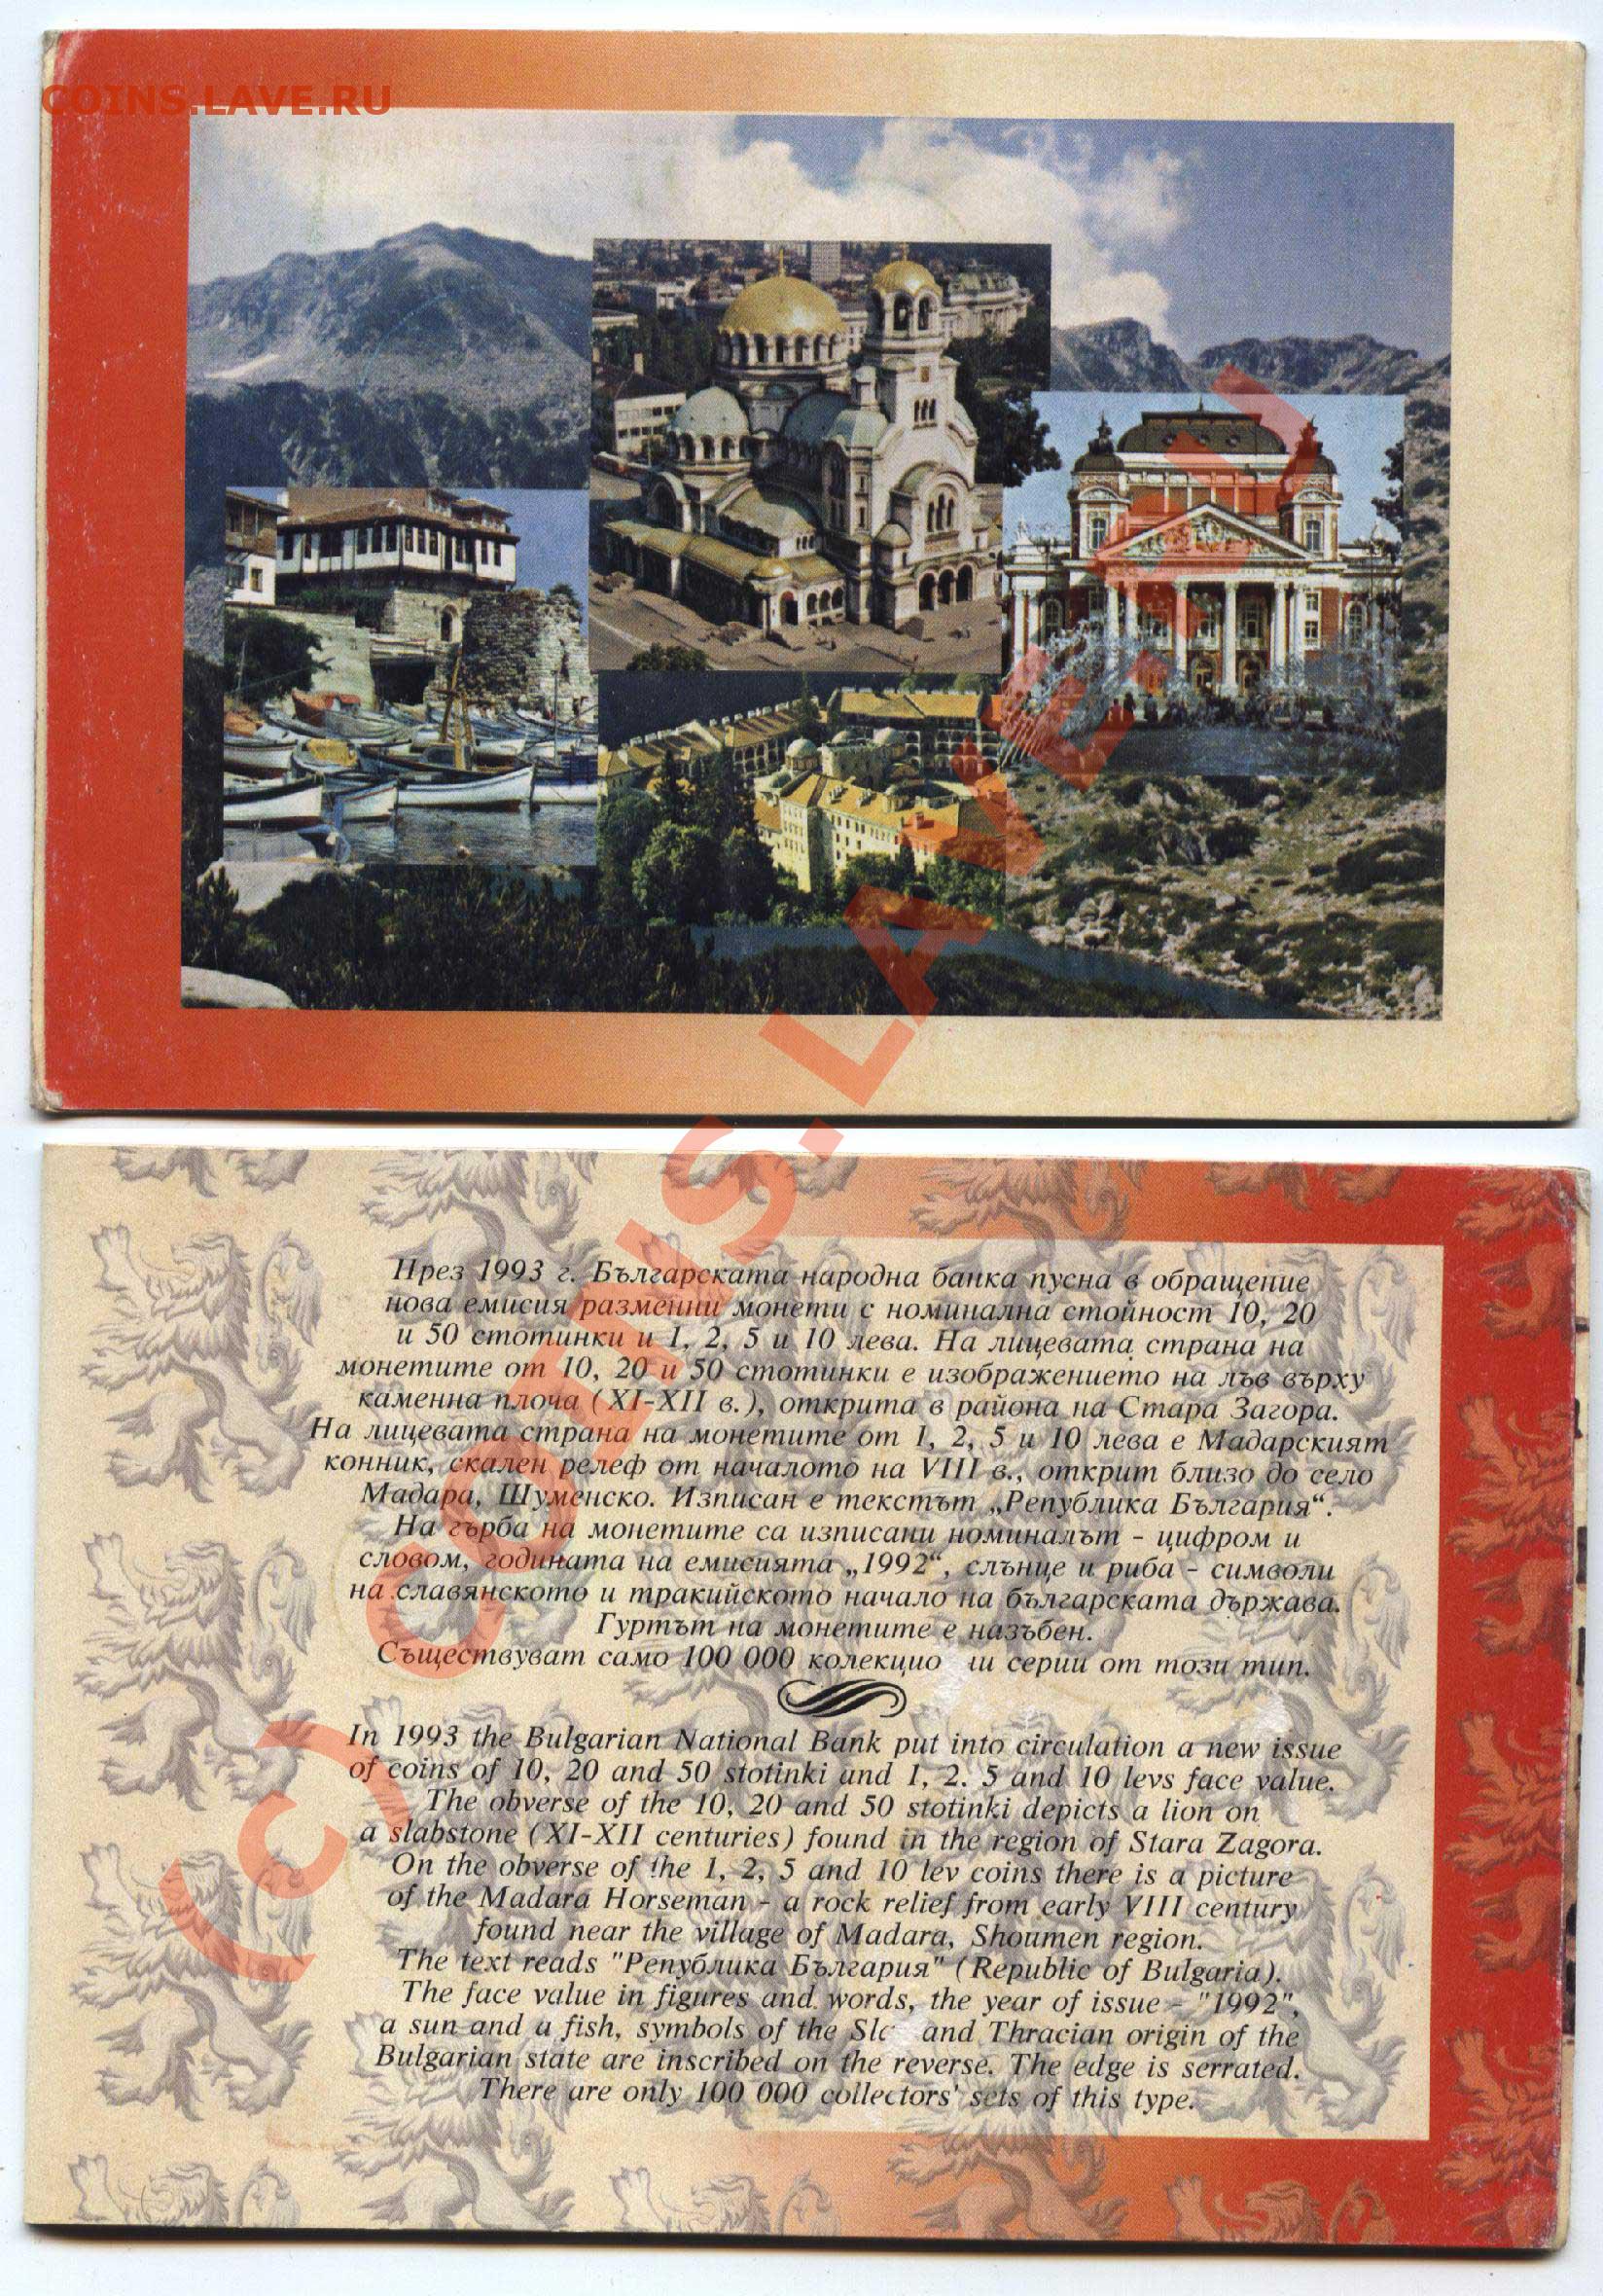 COINS.LAVE.RU
През 1993 г. Българската народна банка пусна в обращение
нова емисия разменни монети с номинална стойност 10, 20
и 50 стотинки и 1, 2, 5 и 10 лева. На лицевата страна на
монетите от 10, 20 и 50 стотинки е изображението на лъв върху
каменна плоча (XI-XII в.), открита в района на Стара Загора.
На лицевата страна на монетите от 1, 2, 5 и 10 лева е Мадарският
конник, скален релеф от началото на VIII в., открит близо до село
Мадара, Шуменско. Изписан е текстът „Република България“.
На гърба на монетите са изписани номиналът - цифром и
словом, годината на емисията „1992“, слънце и риба - символи
на славянското и тракийското начало на българската държава.
Гуртът на монетите е назъбен.
Съществуват само 100 000 серии от този тип.
In 1993 the Bulgarian National Bank put into circulation a new issue
of coins of 10, 20 and 50 stotinki and 1, 2. 5 and 10 levs face value.
The obverse of the 10, 20 and 50 stotinki depicts a lion on
a slabstone (XI-XII centuries) found in the region of Stara Zagora.
On the obverse of the 1, 2, 5 and 10 lev coins there is a picture
of the Madara Horseman - a rock relief from early VIII century
found near the village of Madara, Shoumen region.
The text reads "Република България" (Republic of Bulgaria).
The face value in figures and words, the year of issue - "1992",
a sun and a fish, symbols of the and Thracian origin of the
Bulgarian state are inscribed on the reverse. The edge is serrated.
There are only 100 000 collectors' sets of this type.
(c) COINS.LAVE.RU